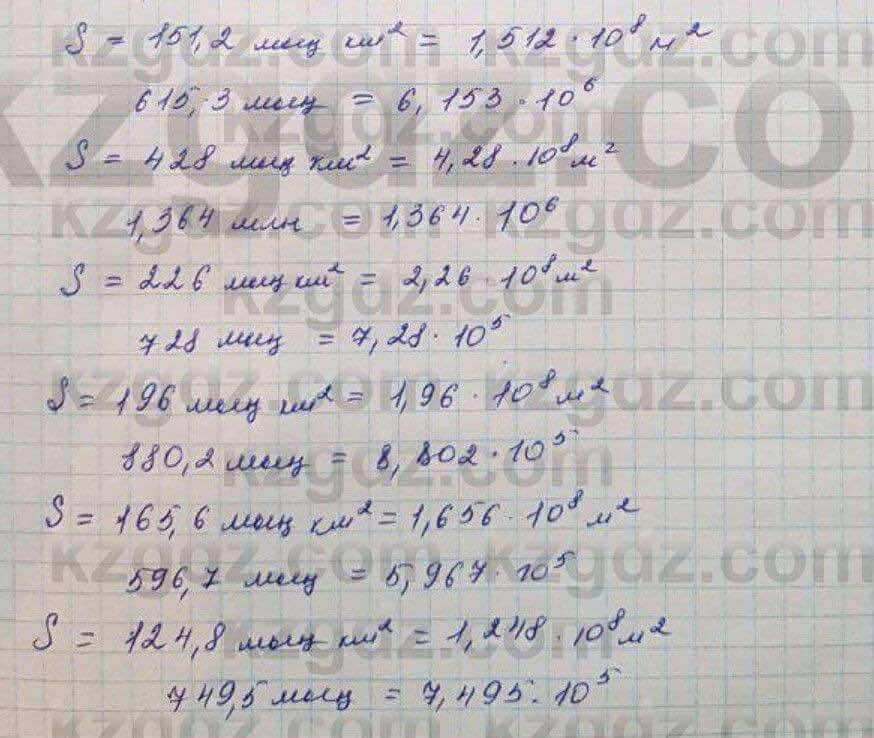 S = 151,2 мың км² = 1,512 · 10⁸ м²
615,3 мың = 6,153 · 10⁶
S = 428 мың км² = 4,28 · 10⁸ м²
1,364 млн = 1,364 · 10⁶
S = 226 мың км² = 2,26 · 10⁸ м²
728 мың = 7,28 · 10⁵
S = 196 мың км² = 1,96 · 10⁸ м²
880,2 мың = 8,802 · 10⁵
S = 165,6 мың км² = 1,656 · 10⁸ м²
596,7 мың = 5,967 · 10⁵
S = 124,8 мың км² = 1,248 · 10⁸ м²
749,5 мың = 7,495 · 10⁵